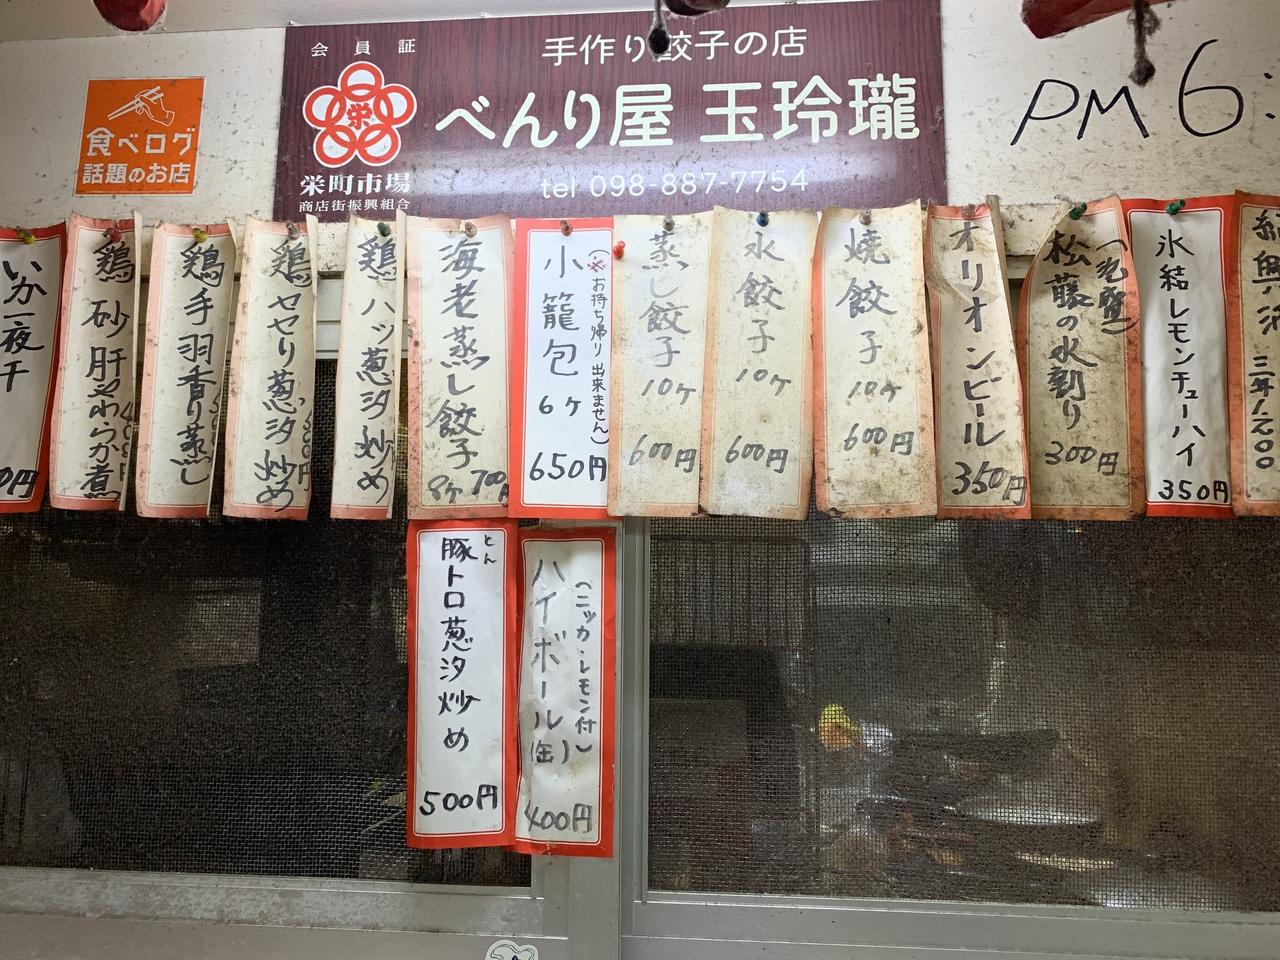 会員証
手作り餃子の店
べんり屋 玉玲瓏
tel 098-887-7754
栄
栄町市場
商店街振興組合
食べログ
話題のお店
PM 6:
いか一夜干
0円
鶏砂肝やわらか煮
鶏手羽香り蒸し
鶏セセリ葱汐炒め
鶏ハツ葱汐炒め
海老蒸し餃子
8ヶ 700円
小籠包
(※お持ち帰り出来ません)
6ヶ
650円
蒸し餃子
10ヶ
600円
水餃子
10ヶ
600円
焼餃子
10ヶ
600円
オリオンビール
350円
松藤の水割り
300円
氷結レモンチューハイ
350円
三年1600
とん
豚トロ葱汐炒め
500円
(ニッカ・レモン付)
ハイボール(缶)
400円